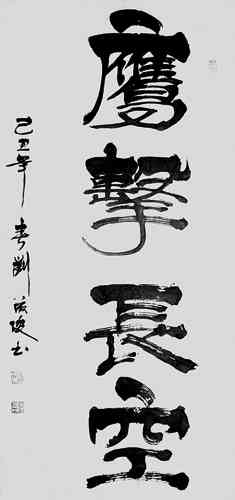 鷹擊長空
己丑年春劉
書